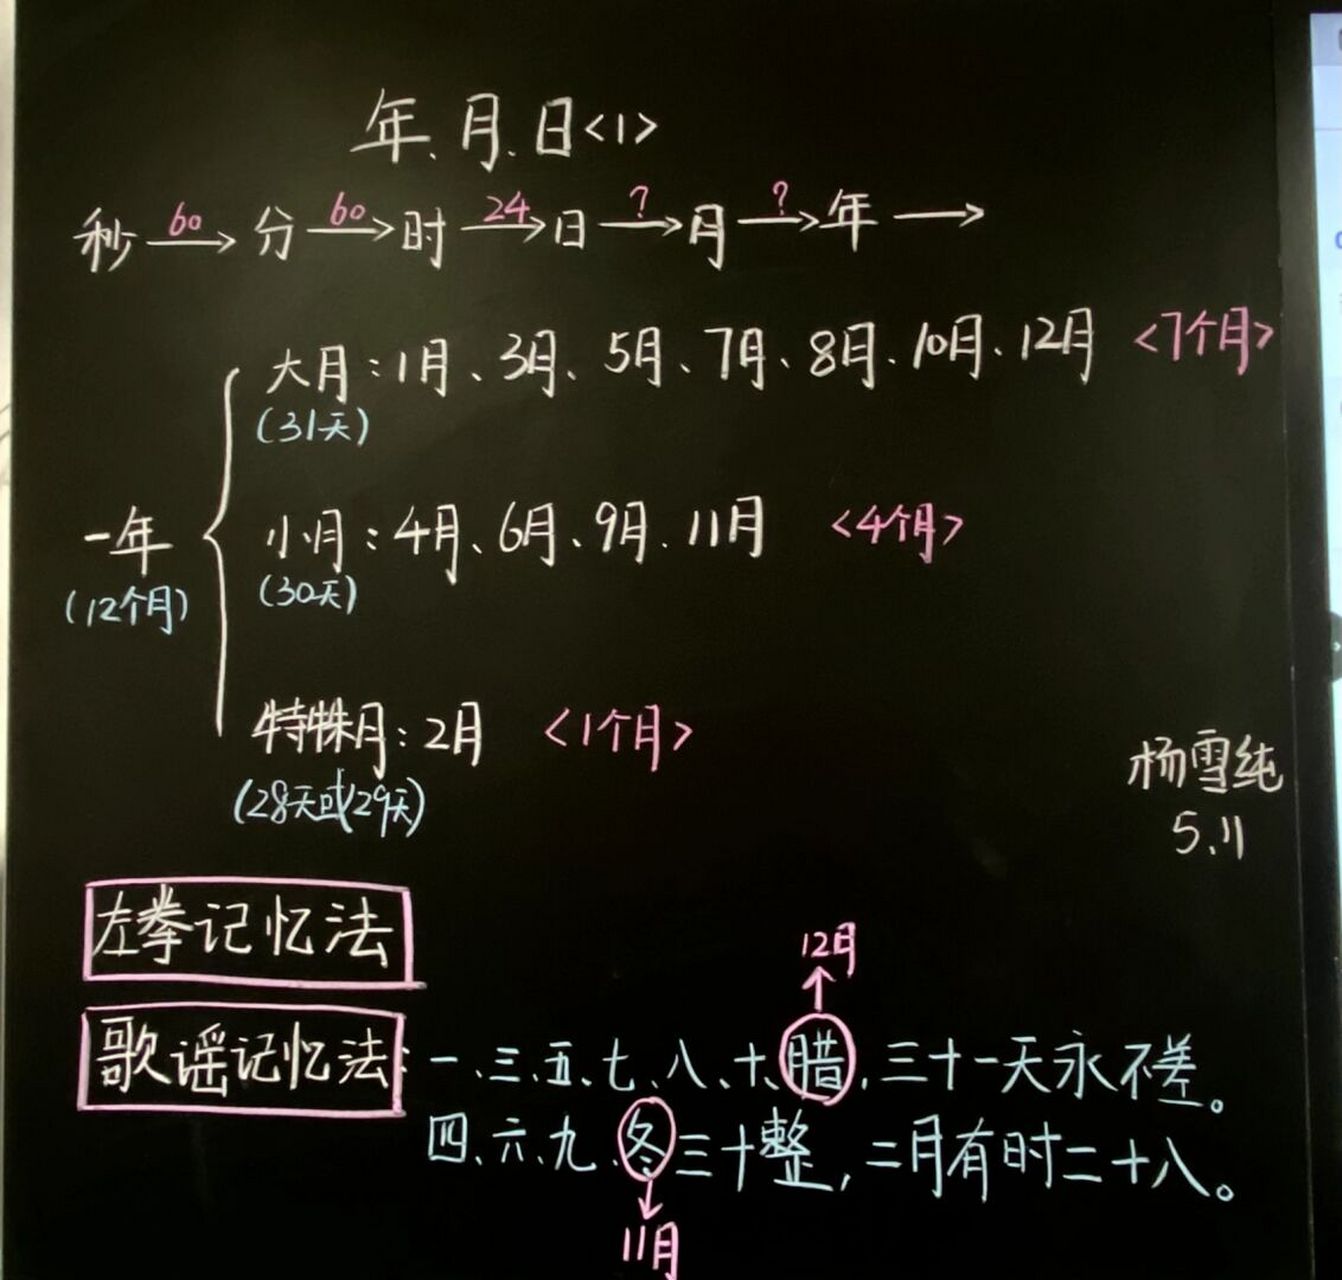 年、月、日<1>
秒 60→ 分 60→ 时 24→ 日 ?→ 月 ?→ 年 →
大月：1月、3月、5月、7月、8月、10月、12月 <7个月>
(31天)
一年
(12个月)
小月：4月、6月、9月、11月 <4个月>
(30天)
特殊月：2月 <1个月>
(28天或29天)
杨雪纯
5.11
左拳记忆法
12月
歌谣记忆法：一、三、五、七、八、十、腊，三十一天永不差。
四、六、九、冬三十整，二月有时二十八。
11月